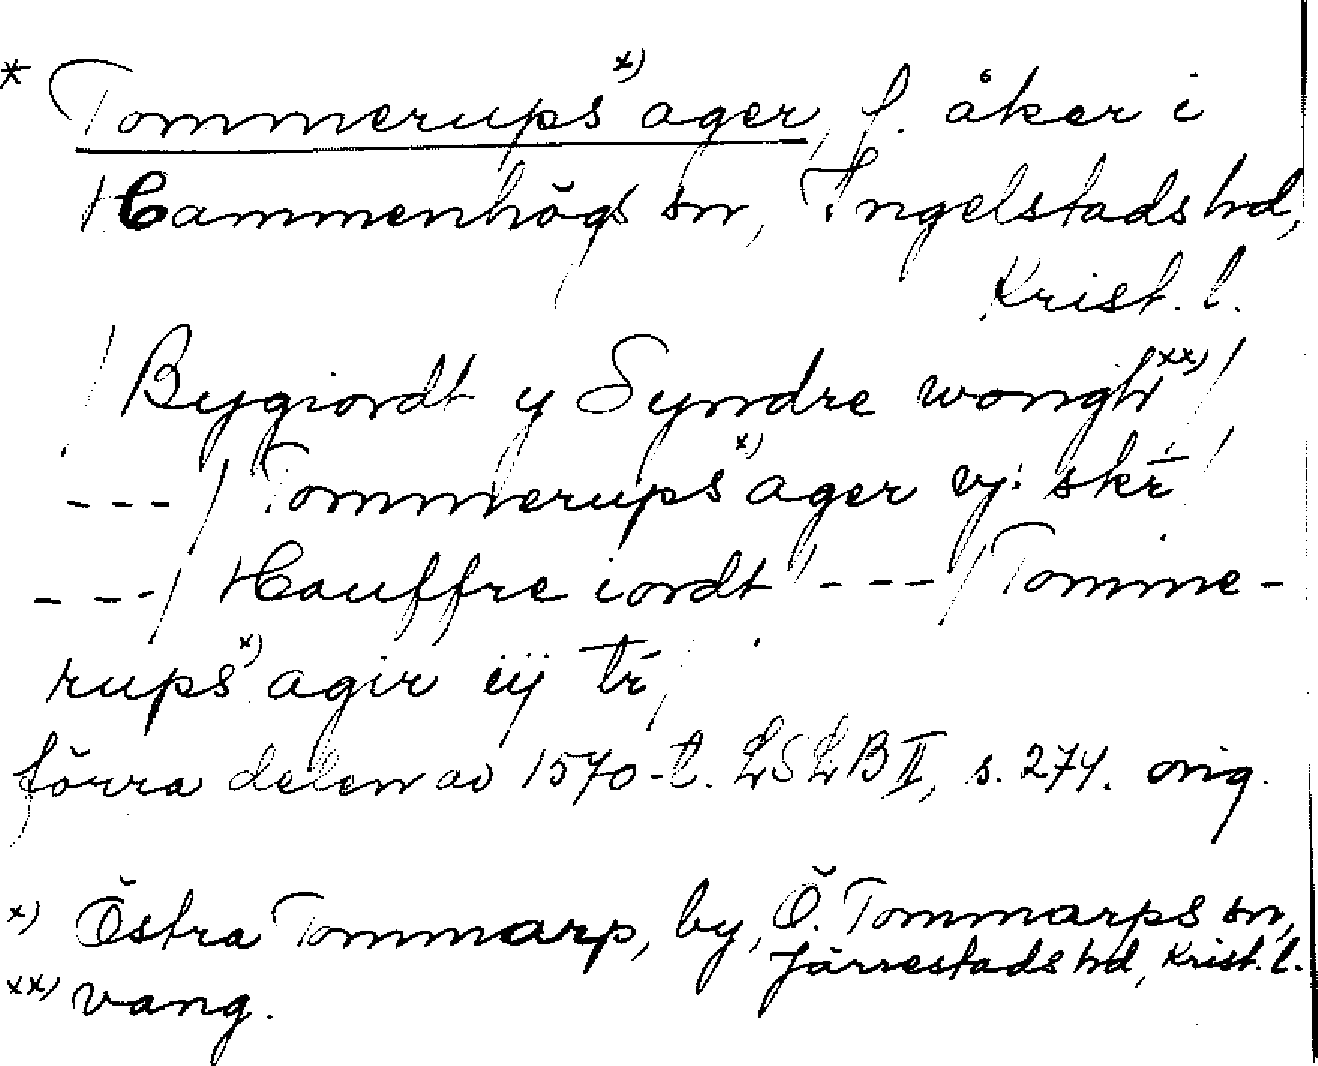 * Tommerups x) ager, f. åker i
Hammenhögs sn, Ingelstads hd,
Krist. l.
/ Bygiordt y Syndre wongh xx) /
--- / Tommerups x) ager vj: skr̄ /
--- / Hauffre iordt / --- / Tomme-
rups x) agir iij tr̄ /
förra delen av 1570-t. LSLB II, s. 274. orig.
x) Östra Tommarp, by, Ö. Tommarps sn,
Järrestads hd, Krist. l.
xx) vang.